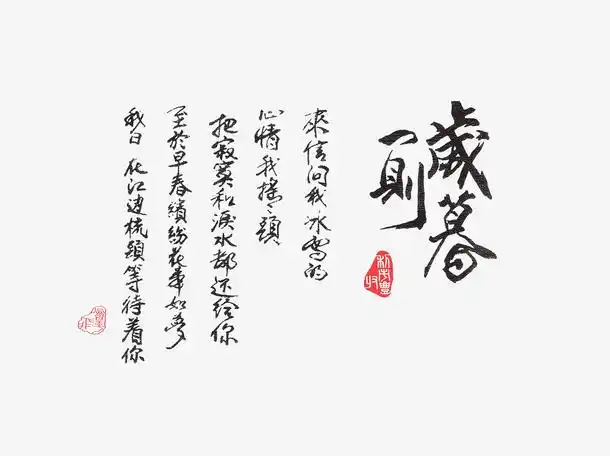 歲暮
一則
來信問我冰雪的
心情我搖搖頭
把寂寞和淚水都還給你
至於早春繽紛花事如夢
我日 在江邊梳頭等待着你